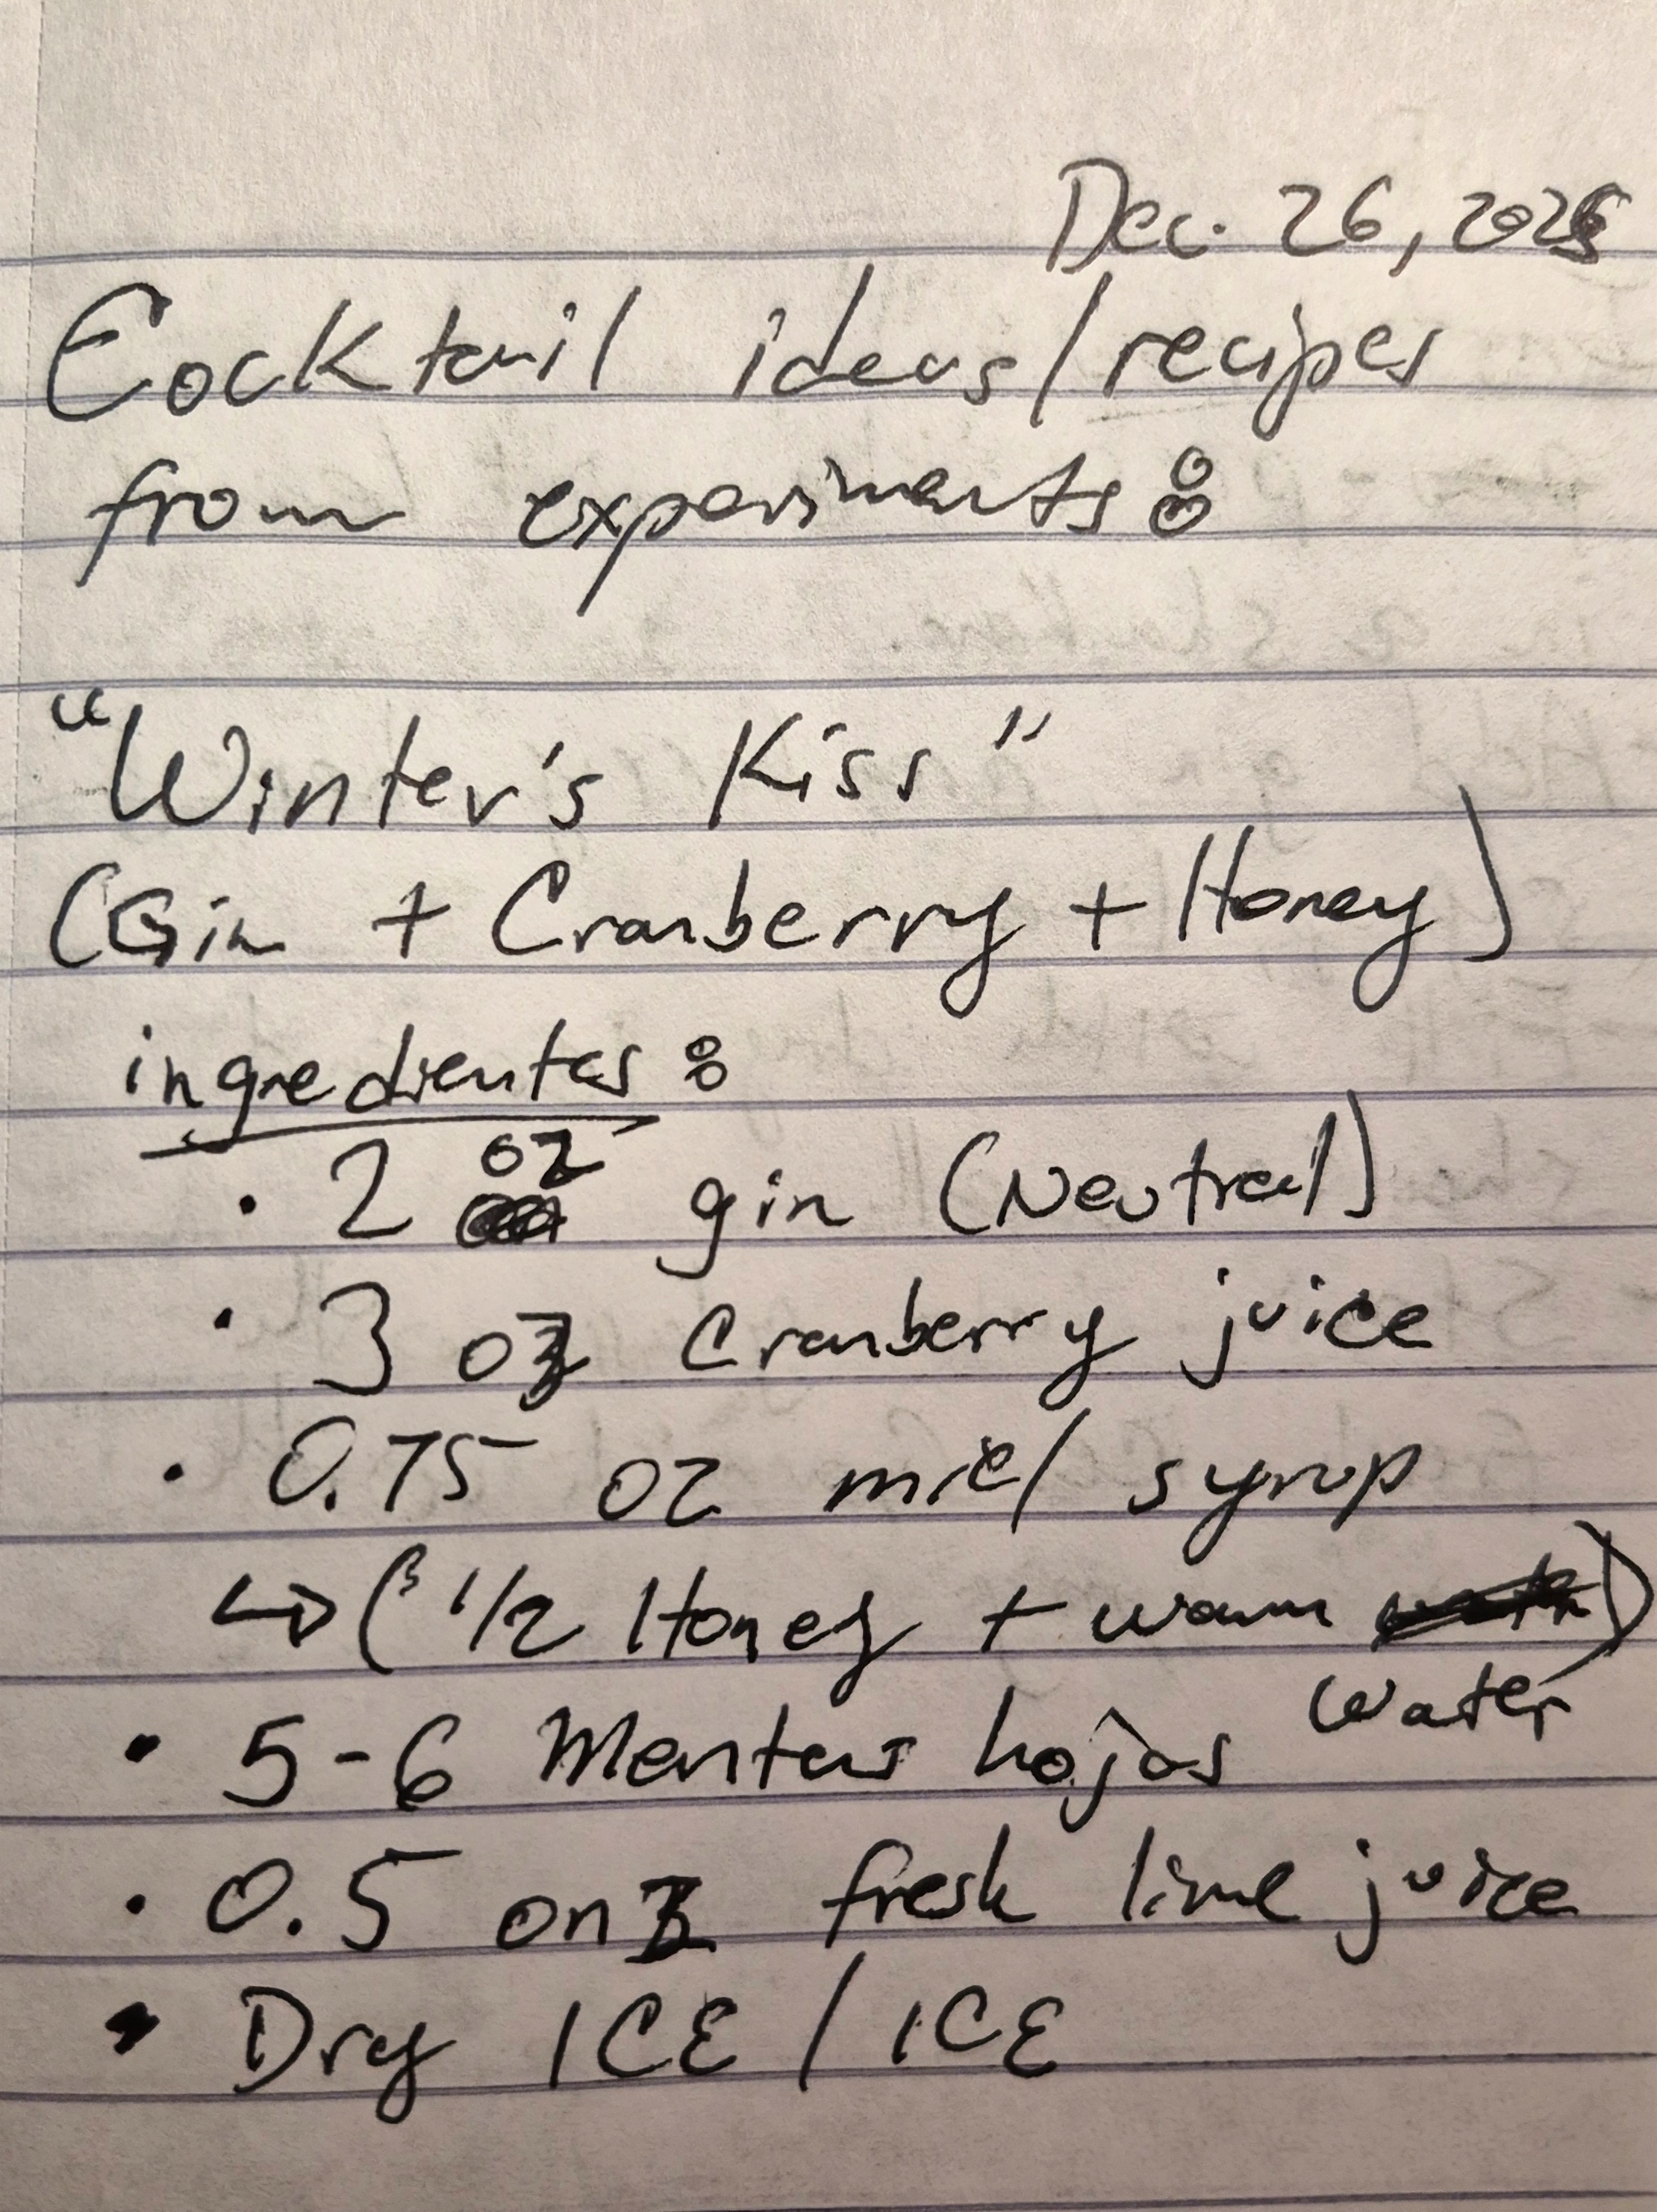 Dec. 26, 2025
Cocktail ideas/recipes
from experiments:
"Winter's Kiss"
(Gin + Cranberry + Honey)
ingredientes:
• 2 oz gin (Neutral)
• 3 oz Cranberry juice
• 0.75 oz miel syrup
↳ (1/2 Honey + warm water)
• 5-6 Mentas hojas
• 0.5 onz fresh lime juice
• Dry ICE / ICE